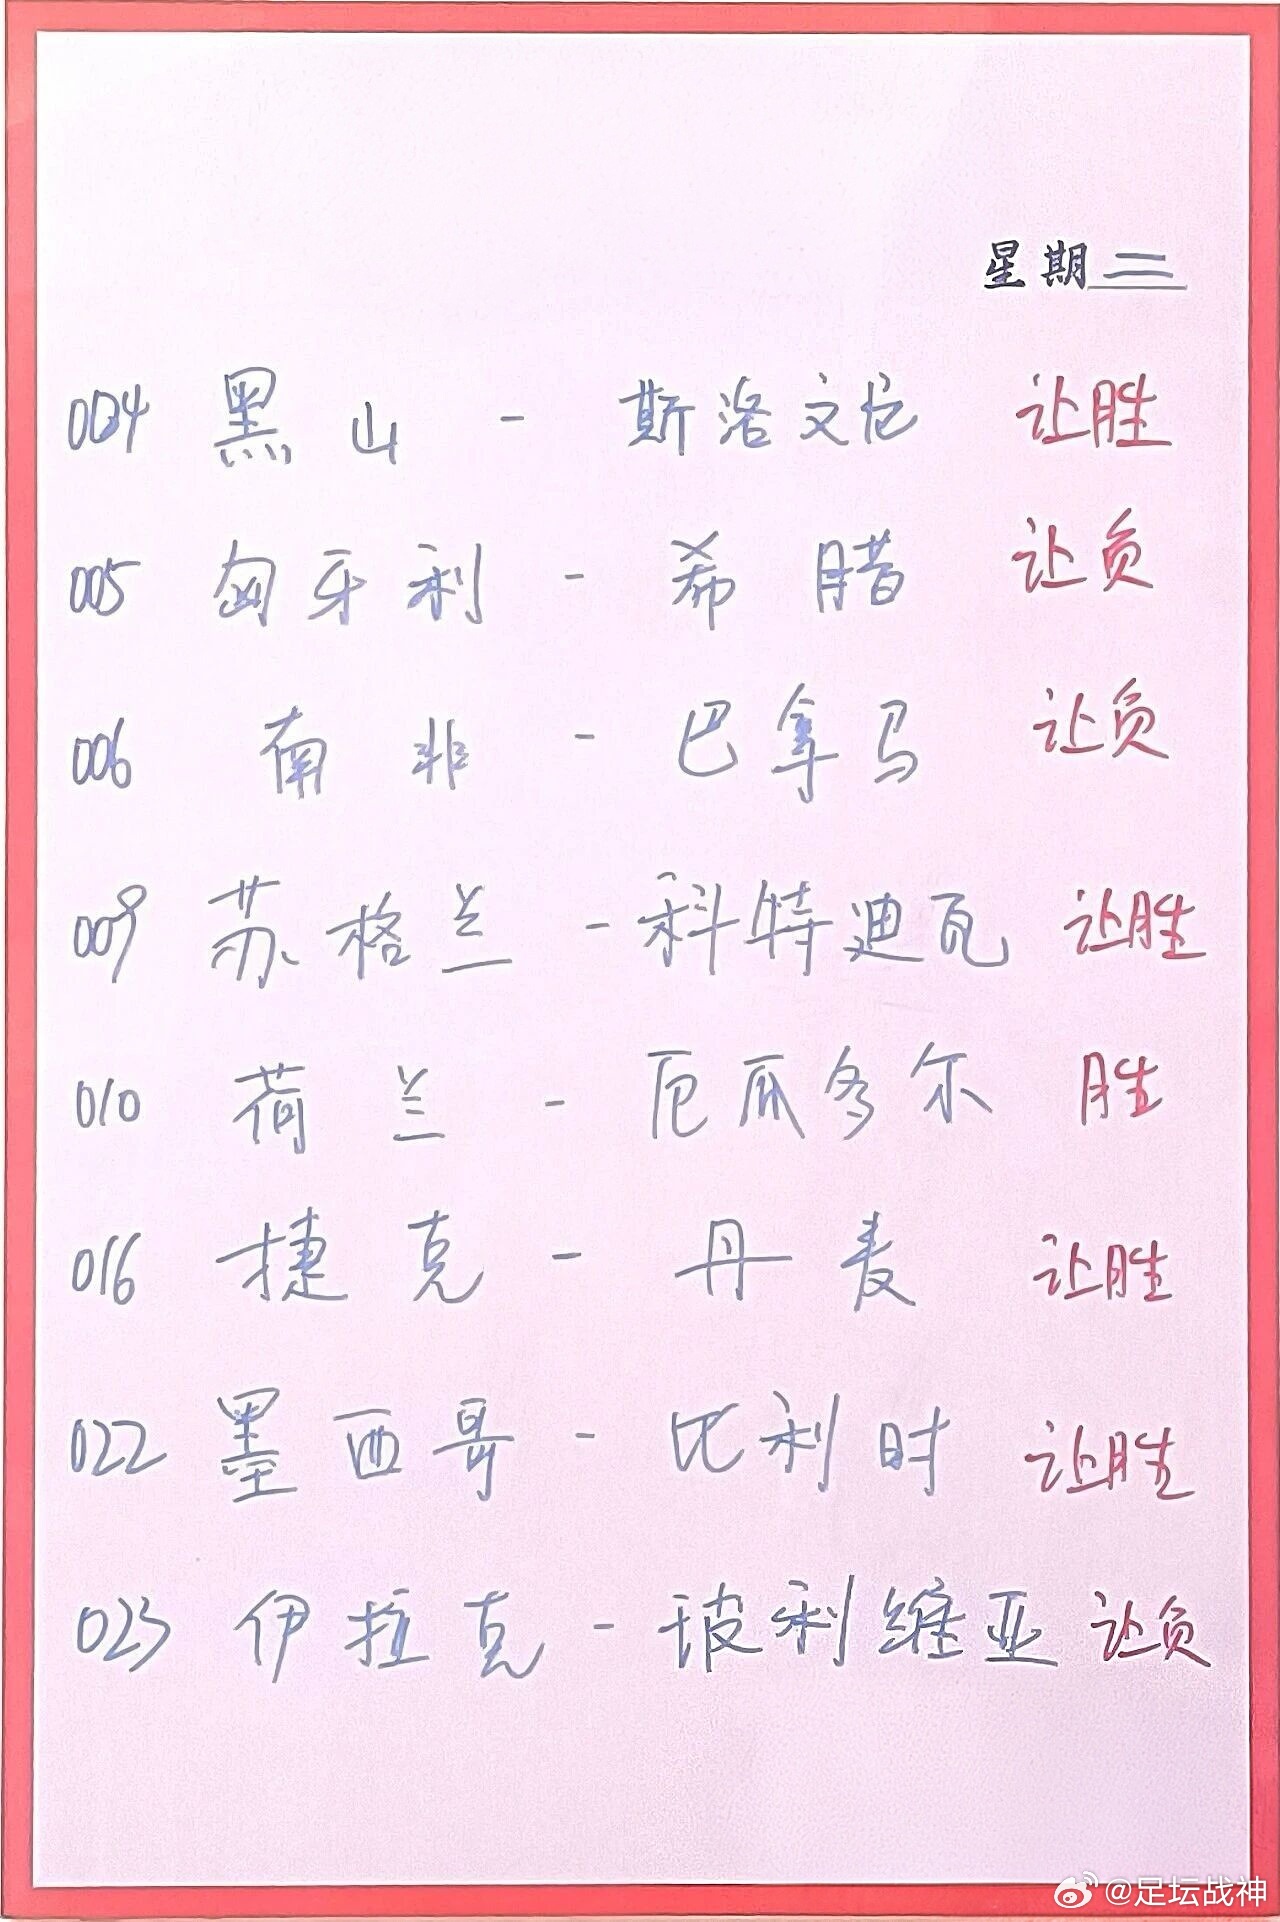 星期二
004 黑山 - 斯洛文尼 让胜
005 匈牙利 - 希腊 让负
006 南非 - 巴拿马 让负
009 苏格兰 - 科特迪瓦 让胜
010 荷兰 - 厄瓜多尔 胜
016 捷克 - 丹麦 让胜
022 墨西哥 - 比利时 让胜
023 伊拉克 - 玻利维亚 让负
@足坛战神